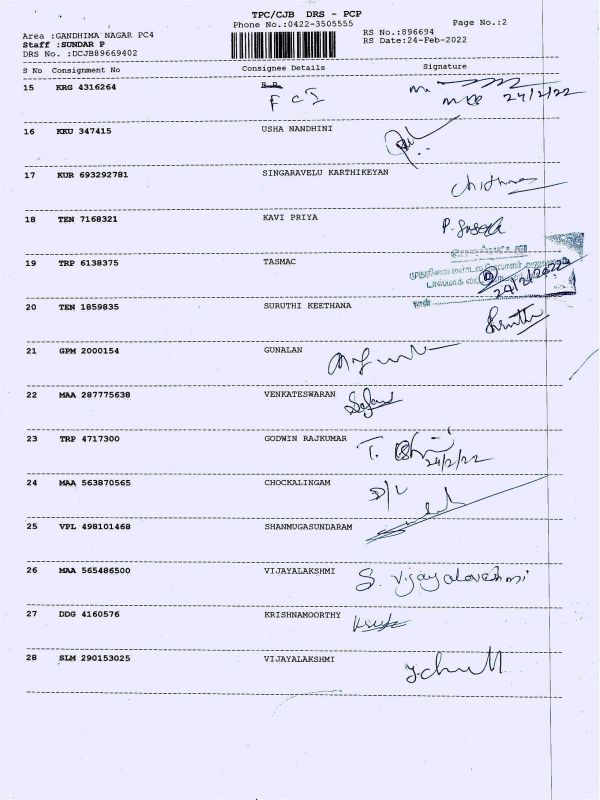 TPC/CJB DRS - PCP
Phone No.:0422-3505555
Page No.:2
Area :GANDHIMA NAGAR PC4
RS No.:896694
Staff :SUNDAR P
RS Date:24-Feb-2022
DRS No. :DCJB89669402
S No Consignment No Consignee Details Signature
15 KRG 4316264 F C I 24/2/22
16 KKU 347415 USHA NANDHINI
17 KUR 693292781 SINGARAVELU KARTHIKEYAN
18 TEN 7168321 KAVI PRIYA
19 TRP 6138375 TASMAC
24/2/2022
20 TEN 1859835 SURUTHI KEETHANA
21 GPM 2000154 GUNALAN
22 MAA 287775638 VENKATESWARAN
23 TRP 4717300 GODWIN RAJKUMAR
24/2/22
24 MAA 563870565 CHOCKALINGAM
25 VPL 498101468 SHANMUGASUNDARAM
26 MAA 565486500 VIJAYALAKSHMI
27 DDG 4160576 KRISHNAMOORTHY
28 SLM 290153025 VIJAYALAKSHMI